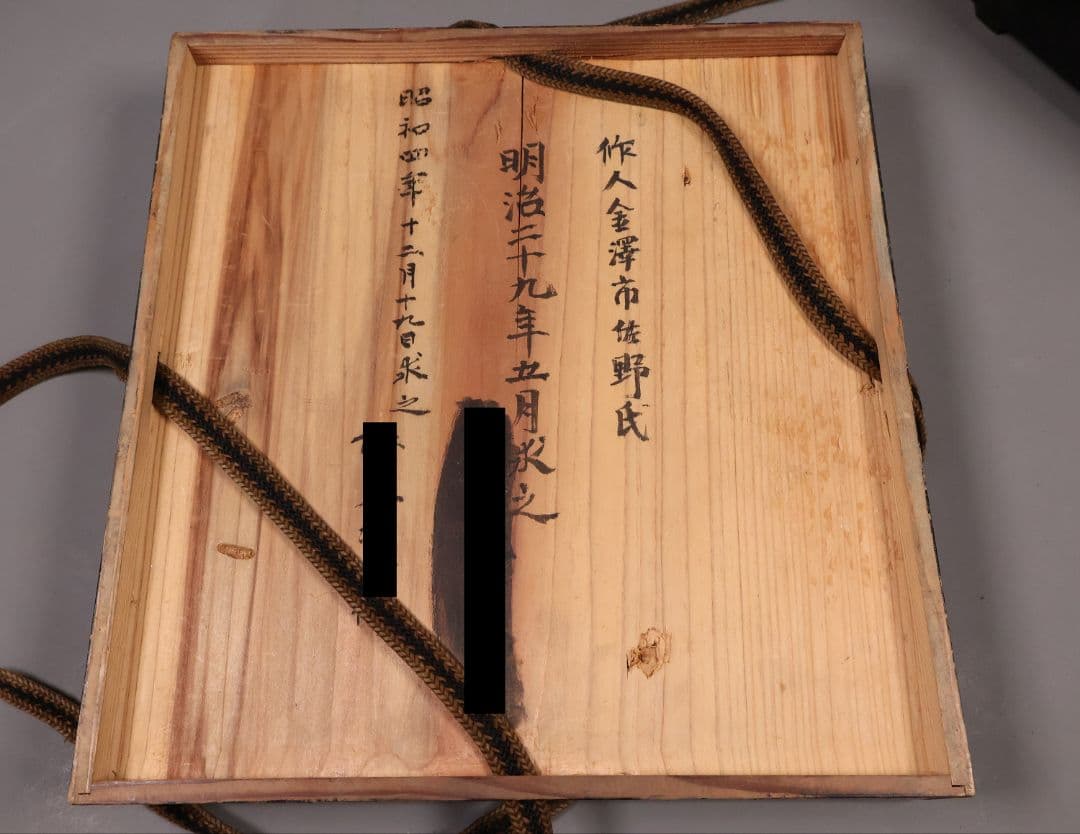 作人金澤市佐野氏
明治二十九年五月求之
昭和四年十二月十九日求之